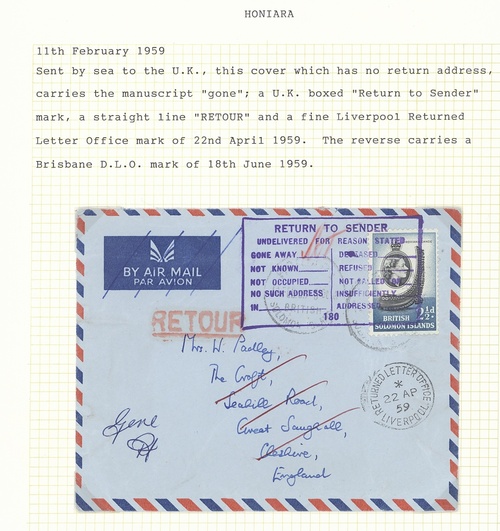 HONIARA
11th February 1959
Sent by sea to the U.K., this cover which has no return address,
carries the manuscript "gone"; a U.K. boxed "Return to Sender"
mark, a straight line "RETOUR" and a fine Liverpool Returned
Letter Office mark of 22nd April 1959. The reverse carries a
Brisbane D.L.O. mark of 18th June 1959.
BY AIR MAIL
PAR AVION
RETURN TO SENDER
UNDELIVERED FOR REASON STATED
GONE AWAY DECEASED
NOT KNOWN REFUSED
NOT OCCUPIED NOT CALLED FOR
NO SUCH ADDRESS INSUFFICIENTLY
IN ADDRESSED
180
2½d
BRITISH
SOLOMON ISLANDS
RETOUR
Mrs. W. Padley,
The Croft,
Seahill Road,
Great Saughall,
Cheshire,
England
Gone
RETURNED LETTER OFFICE
22 AP
59
LIVERPOOL